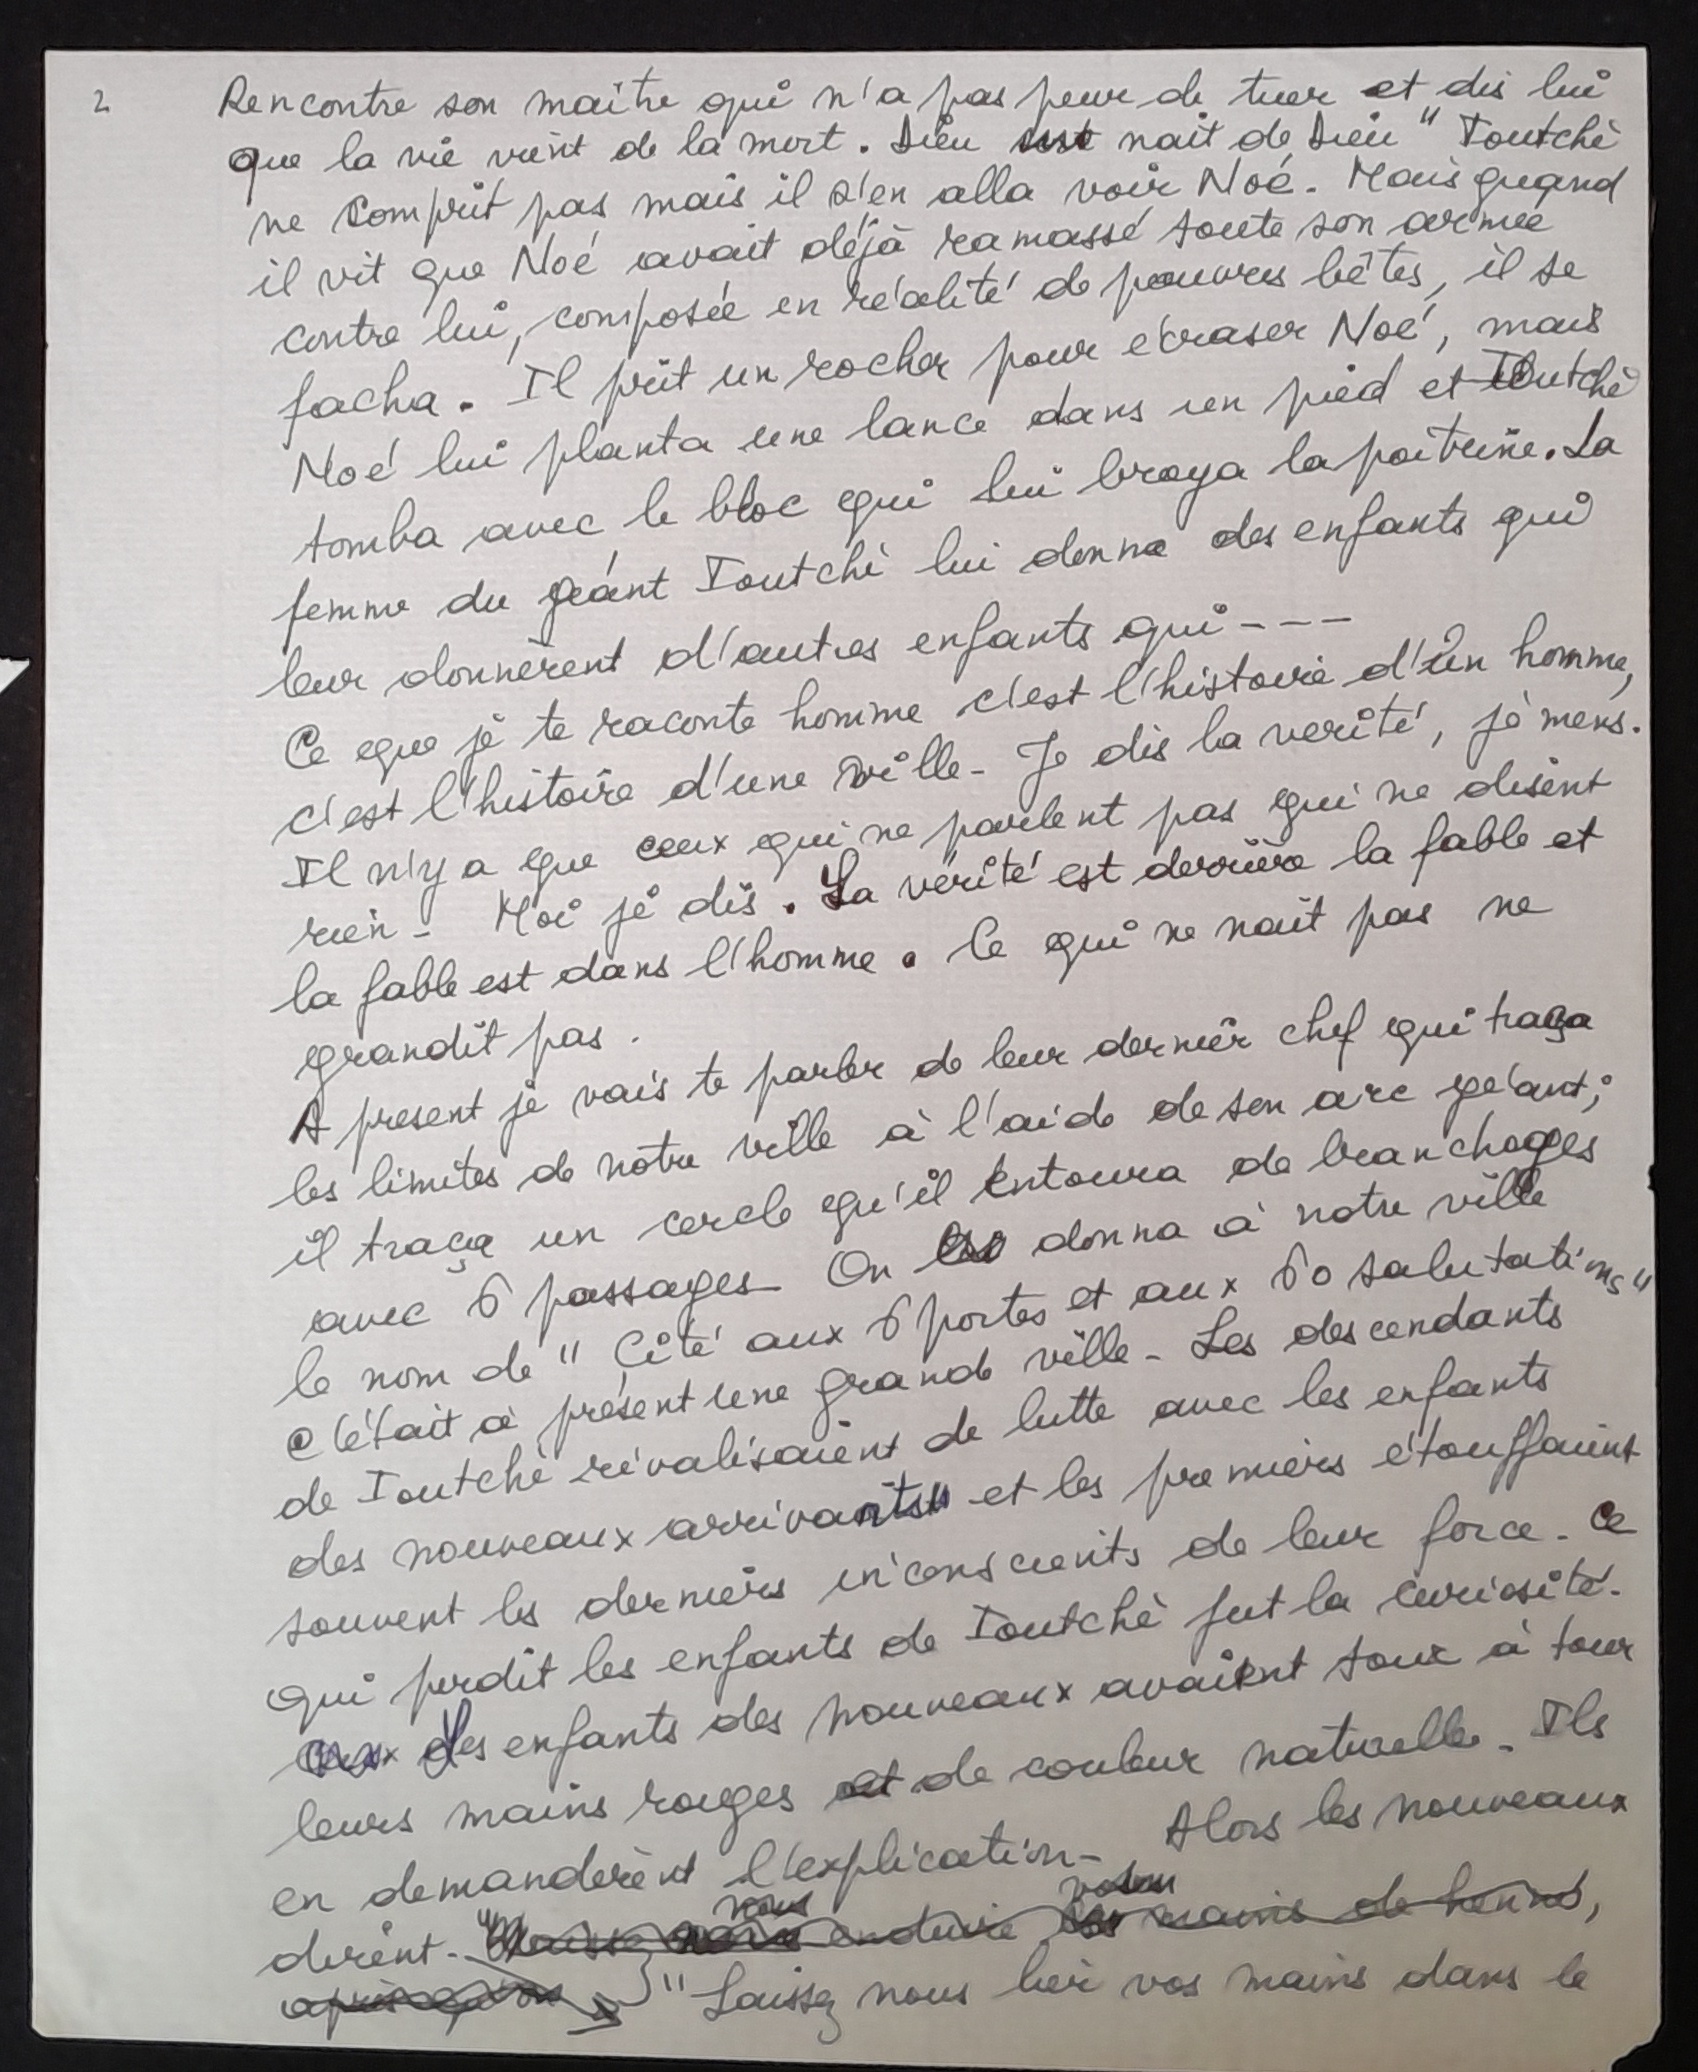 2
Rencontre son maître qui n'a pas peur de tuer et dis lui
que la vie vient de la mort. Dieu nait de Dieu " Toutchè
ne comprit pas mais il s'en alla voir Noé. Mais quand
il vit que Noé avait déjà ramassé toute son armée
contre lui, composée en réalité de pauvres bêtes, il se
facha. Il prit un rocher pour écraser Noé, mais
Noé lui planta une lance dans un pied et Toutchè
tomba avec le bloc qui lui broya la poitrine. La
femme du géant Toutchè lui donna des enfants qui
leur donnèrent d'autres enfants qui - - -
Ce que je te raconte homme c'est l'histoire d'un homme,
c'est l'histoire d'une ville - Je dis la verité, je mens.
Il n'y a que ceux qui ne parlent pas qui ne disent
rien - Moi je dis. La vérité est derrière la fable et
la fable est dans l'homme. Ce qui ne nait pas ne
grandit pas.
A present je vais te parler de leur dernier chef qui traça
les limites de notre ville à l'aide de son arc géant;
il traça un cercle qu'il entoura de branchages
avec 6 passages - On donna à notre ville
le nom de " Cité aux 6 portes et aux 60 salutations "
C'était à présent une grande ville - Les descendants
de Toutchè rivalisaient de lutte avec les enfants
des nouveaux arrivants et les premiers étouffaient
souvent les derniers inconscients de leur force - Ce
qui perdit les enfants de Toutchè fut la curiosité.
Les enfants des nouveaux avaient tour à tour
leurs mains rouges et de couleur naturelle - Ils
en demandèrent l'explication - Alors les nouveaux
nous
dirent - enduire mains de henné,
après " Laissez nous lier vos mains dans le